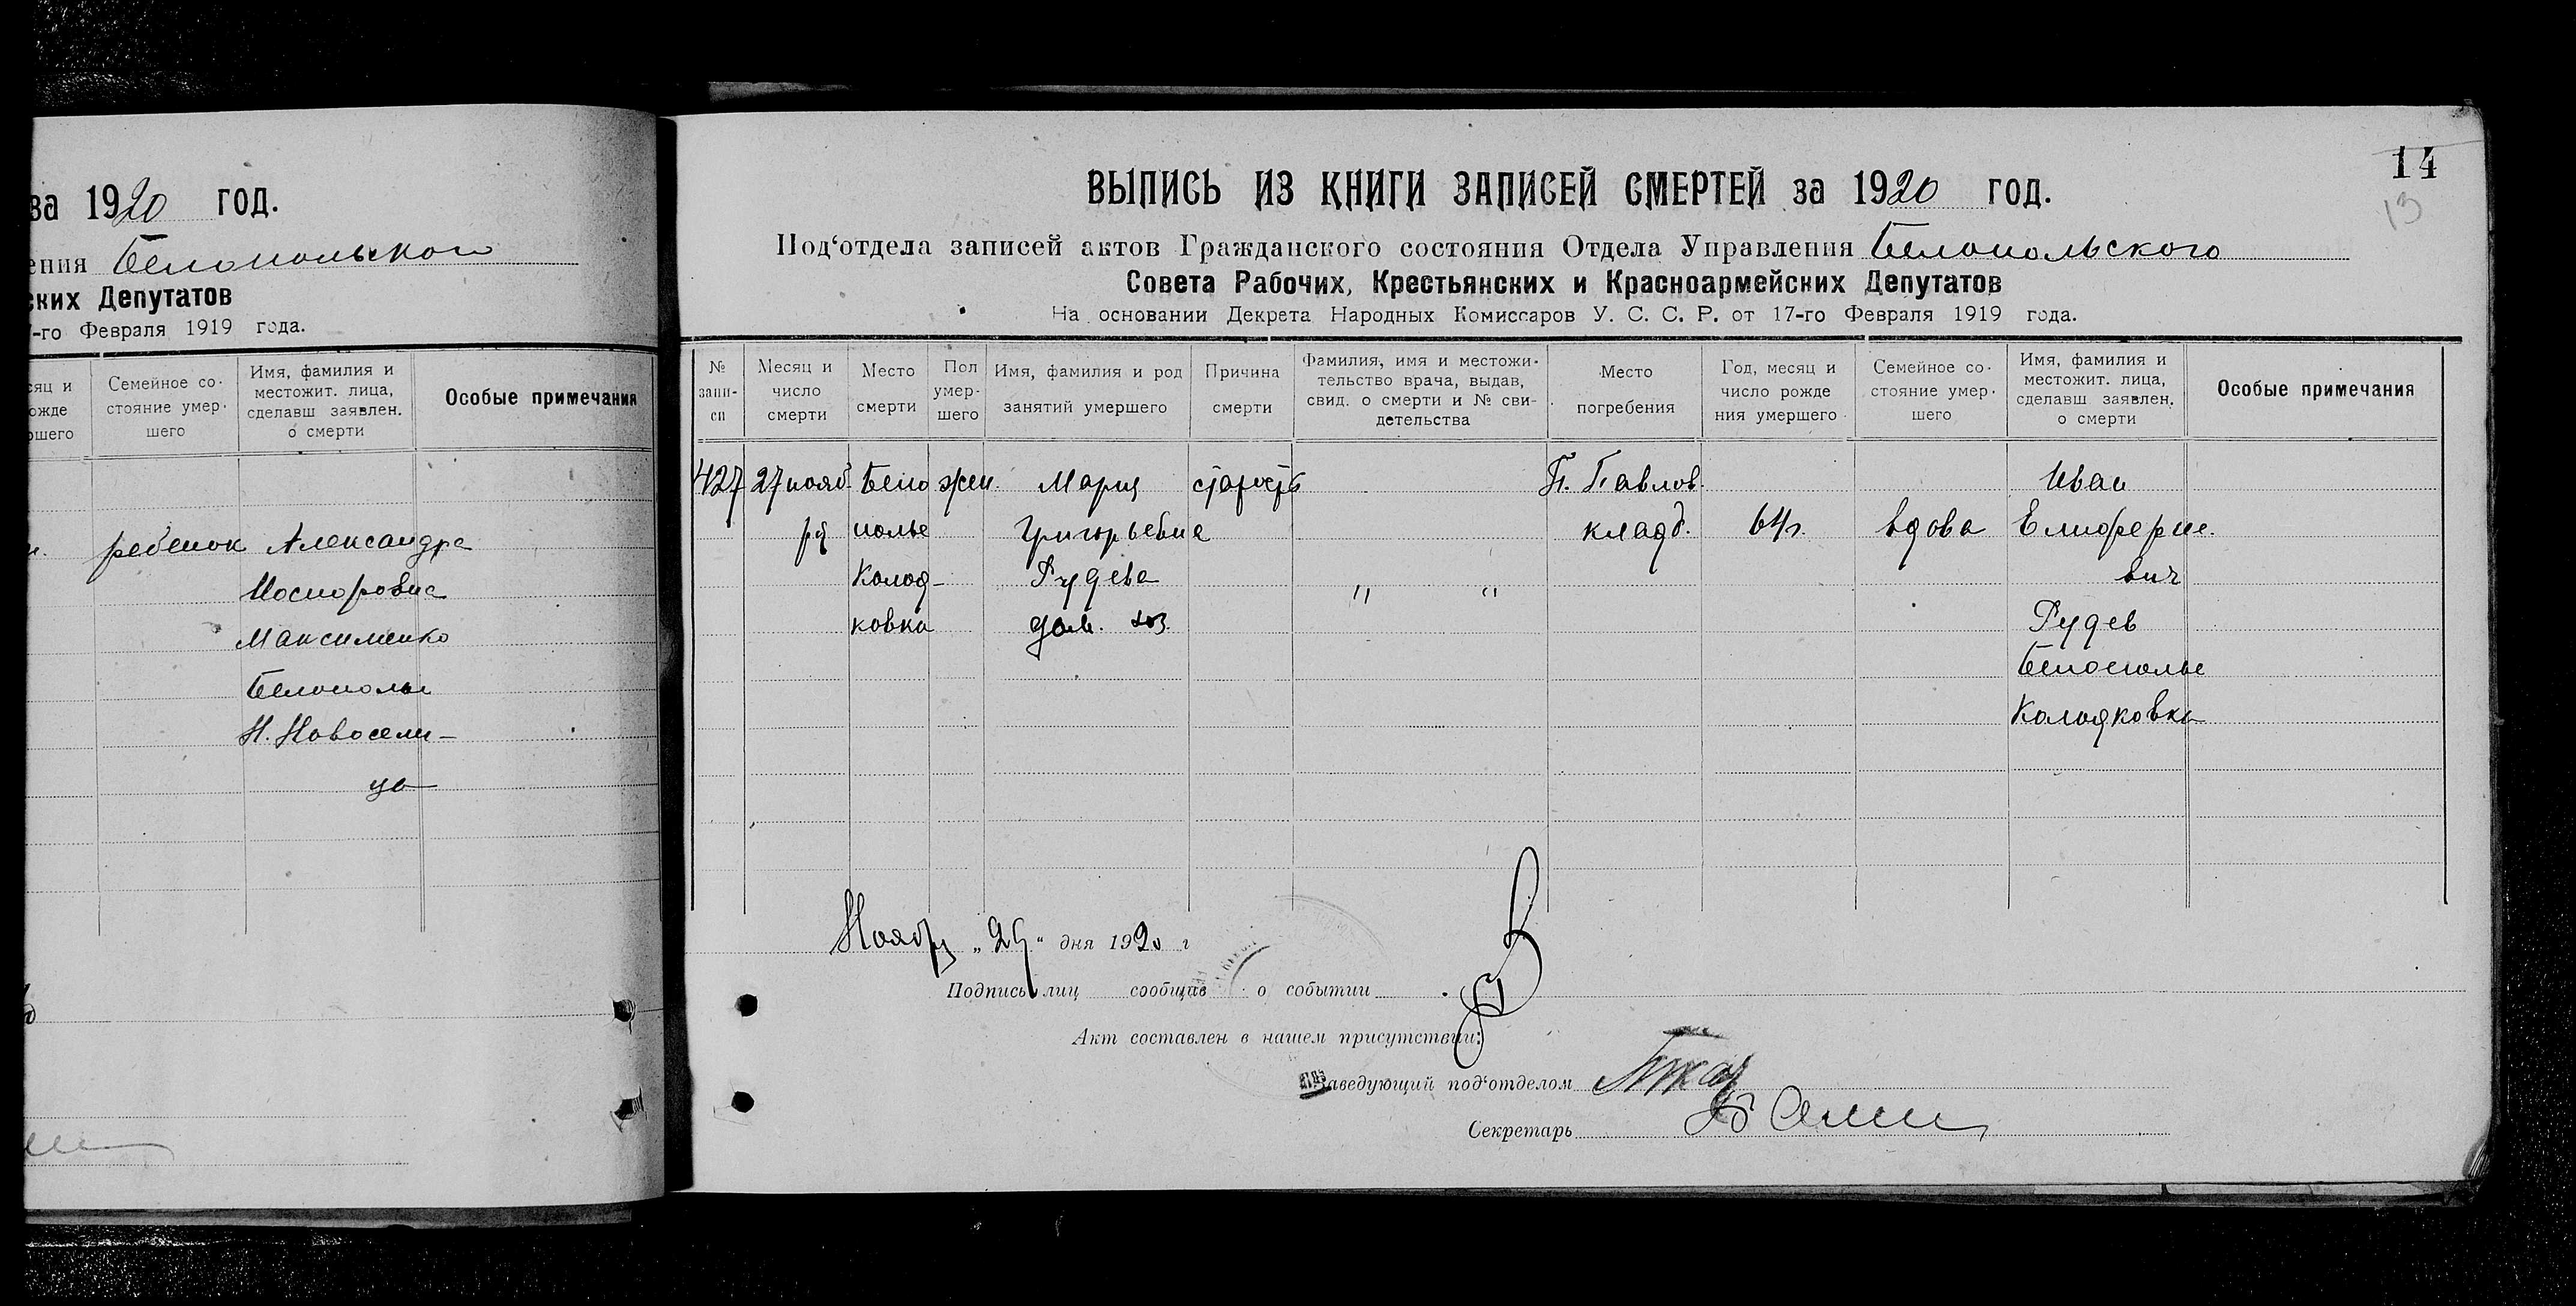 ва 1920 год.
ения Белопольского
ских Депутатов
7-го Февраля 1919 года.
сяц и
ожде
ршего
Семейное со-
стояние умер-
шего
Имя, фамилия и
местожит. лица,
сделавш заявлен.
о смерти
Особые примечания
ребенок Александра
Максименко
Белополье
Н. Новосели-
ца
14
13
ВЫПИСЬ ИЗ КНИГИ ЗАПИСЕЙ СМЕРТЕЙ за 1920 год.
Под'отдела записей актов Гражданского состояния Отдела Управления Белопольского
Совета Рабочих, Крестьянских и Красноармейских Депутатов
На основании Декрета Народных Комиссаров У. С. С. Р. от 17-го Февраля 1919 года.
№
запи-
си
Месяц и
число
смерти
Место
смерти
Пол
умер-
шего
Имя, фамилия и род
занятий умершего
Причина
смерти
Фамилия, имя и местожи-
тельство врача, выдав,
свид. о смерти и № сви-
детельства
Место
погребения
Год, месяц и
число рожде
ния умершего
Семейное со-
стояние умер.
шего
Имя, фамилия и
местожит. лица,
сделавш заявлен.
о смерти
Особые примечания
427 27 нояб- Бело жен. Мария старость П. Павлов. Иван
ря полье Григорьевна кладб. 64 г. вдова
Колод- Рудева " " вич
ковка дом. хоз. Рудев
Белополье
Колодковка
Ноября „29“ дня 1920 г
Подпись лиц сообщив о событии
Акт составлен в нашем присутствии:
Заведующий под'отделом
Секретарь